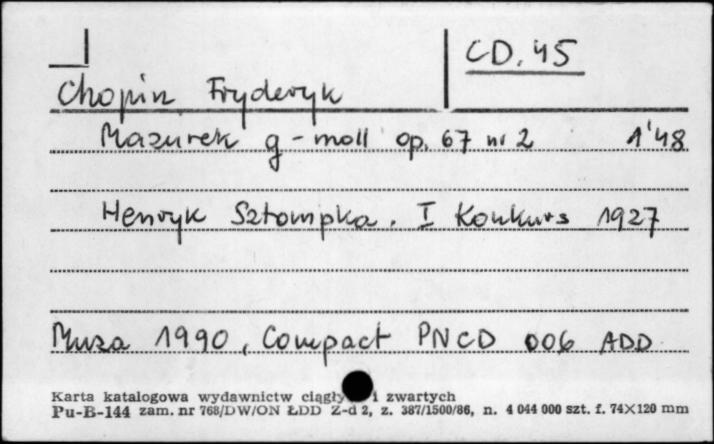 CD.45
Chopin Fryderyk
Mazurek g-moll op. 67 nr 2 1'48
Henryk Sztompka. I Konkurs 1927
Muza 1990, Compact PNCD 006 ADD
Karta katalogowa wydawnictw ciągły i zwartych
Pu-B-144 zam. nr 768/DW/ON ŁDD Z-d 2, z. 387/1500/86, n. 4 044 000 szt. f. 74×120 mm